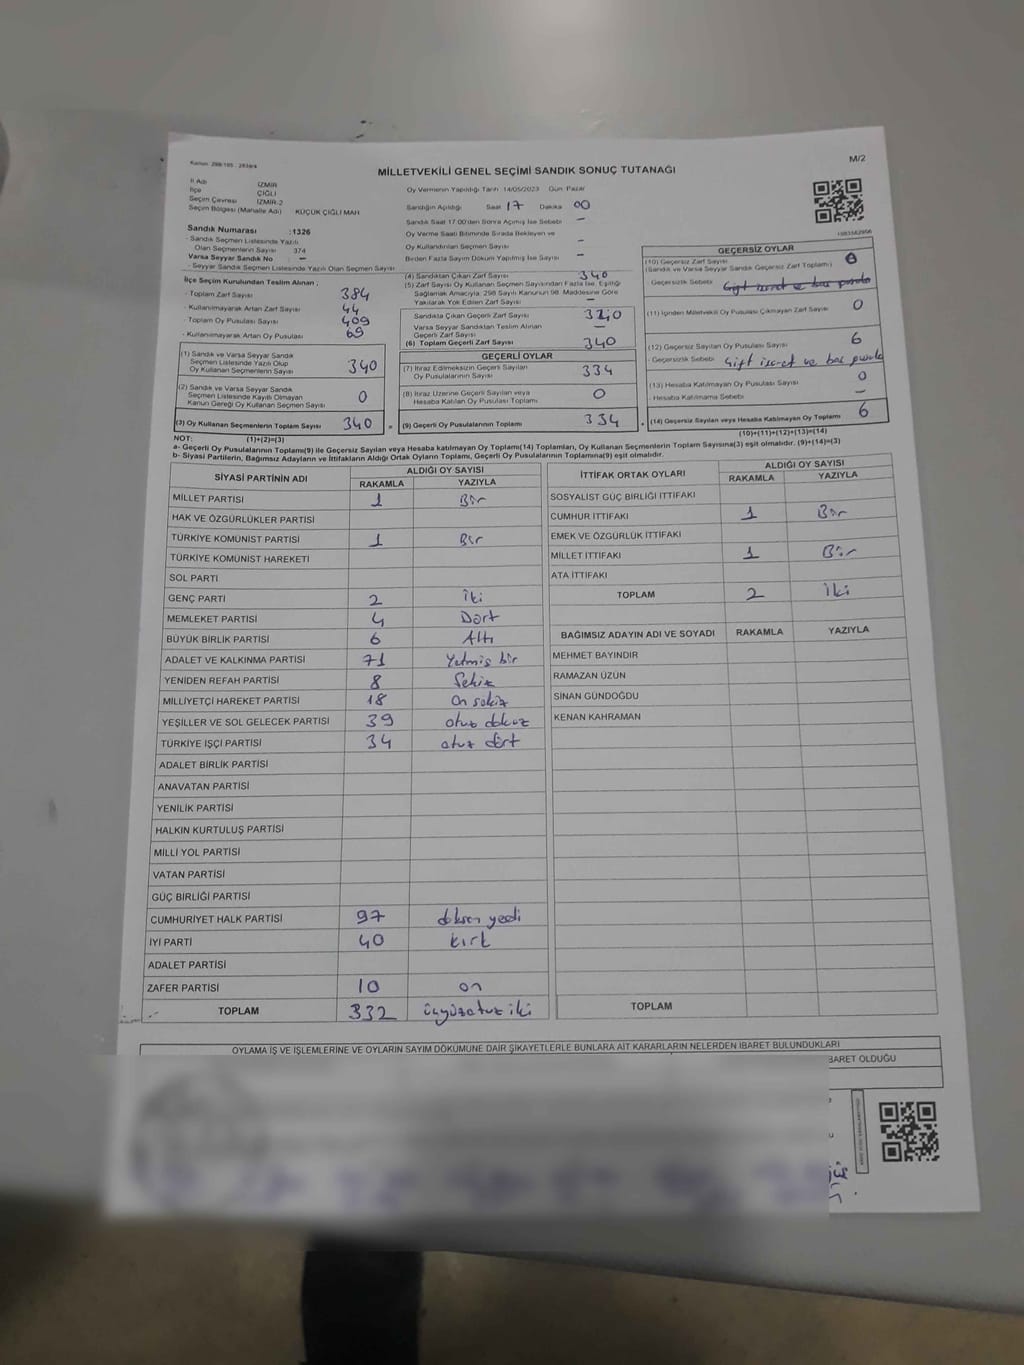 Kanun: 298/105 - 2839/4
M/2
MİLLETVEKİLİ GENEL SEÇİMİ SANDIK SONUÇ TUTANAĞI
İl Adı İZMİR
İlçe ÇİĞLİ
Seçim Çevresi İZMİR-2
Seçim Bölgesi (Mahalle Adı) KÜÇÜK ÇİĞLİ MAH.
Sandık Numarası :1326
- Sandık Seçmen Listesinde Yazılı
Olan Seçmenlerin Sayısı 374
Varsa Seyyar Sandık No : —
- Seyyar Sandık Seçmen Listesinde Yazılı Olan Seçmen Sayısı
Oy Vermenin Yapıldığı Tarih 14/05/2023 Gün Pazar
Sandığın Açıldığı Saat 17 Dakika 00
Sandık Saat 17:00'den Sonra Açılmış İse Sebebi —
Oy Verme Saati Bitiminde Sırada Bekleyen ve
Oy Kullandırılan Seçmen Sayısı —
Birden Fazla Sayım Döküm Yapılmış İse Sayısı —
İlçe Seçim Kurulundan Teslim Alınan ;
- Toplam Zarf Sayısı 384
- Kullanılmayarak Artan Zarf Sayısı 44
- Toplam Oy Pusulası Sayısı 409
- Kullanılmayarak Artan Oy Pusulası 69
(1) Sandık ve Varsa Seyyar Sandık
Seçmen Listesinde Yazılı Olup
Oy Kullanan Seçmenlerin Sayısı 340
(2) Sandık ve Varsa Seyyar Sandık
Seçmen Listesinde Kayıtlı Olmayan
Kanun Gereği Oy Kullanan Seçmen Sayısı 0
(3) Oy Kullanan Seçmenlerin Toplam Sayısı 340
(4) Sandıktan Çıkan Zarf Sayısı 340
(5) Zarf Sayısı Oy Kullanan Seçmen Sayısından Fazla İse, Eşitliği
Sağlamak Amacıyla, 298 Sayılı Kanunun 98. Maddesine Göre
Yakılarak Yok Edilen Zarf Sayısı —
Sandıkta Çıkan Geçerli Zarf Sayısı 340
Varsa Seyyar Sandıktan Teslim Alınan
Geçerli Zarf Sayısı —
(6) Toplam Geçerli Zarf Sayısı 340
GEÇERLİ OYLAR
(7) İtiraz Edilmeksizin Geçerli Sayılan
Oy Pusulalarının Sayısı 334
(8) İtiraz Üzerine Geçerli Sayılan veya
Hesaba Katılan Oy Pusulası Toplamı 0
(9) Geçerli Oy Pusulalarının Toplamı 334
GEÇERSİZ OYLAR
(10) Geçersiz Zarf Sayısı 0
(Sandık ve Varsa Seyyar Sandık Geçersiz Zarf Toplamı)
- Geçersizlik Sebebi
(11) İçinden Milletvekili Oy Pusulası Çıkmayan Zarf Sayısı 0
(12) Geçersiz Sayılan Oy Pusulası Sayısı 6
- Geçersizlik Sebebi Çift işaret ve boş pusula
(13) Hesaba Katılmayan Oy Pusulası Sayısı 0
- Hesaba Katılmama Sebebi —
(14) Geçersiz Sayılan veya Hesaba Katılmayan Oy Toplamı 6
NOT: (1)+(2)=(3) (10)+(11)+(12)+(13)=(14)
a- Geçerli Oy Pusulalarının Toplamı(9) ile Geçersiz Sayılan veya Hesaba katılmayan Oy Toplamı(14) Toplamları, Oy Kullanan Seçmenlerin Toplam Sayısına(3) eşit olmalıdır. (9)+(14)=(3)
b- Siyasi Partilerin, Bağımsız Adayların ve İttifakların Aldığı Oyların Toplamı, Geçerli Oy Pusulalarının Toplamına(9) eşit olmalıdır.
SİYASİ PARTİNİN ADI ALDIĞI OY SAYISI
RAKAMLA YAZIYLA
MİLLET PARTİSİ 1 Bir
HAK VE ÖZGÜRLÜKLER PARTİSİ
TÜRKİYE KOMÜNİST PARTİSİ 1 Bir
TÜRKİYE KOMÜNİST HAREKETİ
SOL PARTİ
GENÇ PARTİ 2 İki
MEMLEKET PARTİSİ 4 Dört
BÜYÜK BİRLİK PARTİSİ 6 Altı
ADALET VE KALKINMA PARTİSİ 71 Yetmiş bir
YENİDEN REFAH PARTİSİ 8 Sekiz
MİLLİYETÇİ HAREKET PARTİSİ 18 On sekiz
YEŞİLLER VE SOL GELECEK PARTİSİ 39 otuz dokuz
TÜRKİYE İŞÇİ PARTİSİ 34 otuz dört
ADALET BİRLİK PARTİSİ
ANAVATAN PARTİSİ
YENİLİK PARTİSİ
HALKIN KURTULUŞ PARTİSİ
MİLLİ YOL PARTİSİ
VATAN PARTİSİ
GÜÇ BİRLİĞİ PARTİSİ
CUMHURİYET HALK PARTİSİ 97 doksan yedi
İYİ PARTİ 40 kırk
ADALET PARTİSİ
ZAFER PARTİSİ 10 on
TOPLAM 332 üçyüzotuz iki
İTTİFAK ORTAK OYLARI ALDIĞI OY SAYISI
RAKAMLA YAZIYLA
SOSYALİST GÜÇ BİRLİĞİ İTTİFAKI
CUMHUR İTTİFAKI 1 Bir
EMEK VE ÖZGÜRLÜK İTTİFAKI
MİLLET İTTİFAKI 1 Bir
ATA İTTİFAKI
TOPLAM 2 İki
BAĞIMSIZ ADAYIN ADI VE SOYADI RAKAMLA YAZIYLA
MEHMET BAYINDIR
RAMAZAN ÜZÜN
SİNAN GÜNDOĞDU
KENAN KAHRAMAN
TOPLAM
OYLAMA İŞ VE İŞLEMLERİNE VE OYLARIN SAYIM DÖKÜMÜNE DAİR ŞİKAYETLERLE BUNLARA AİT KARARLARIN NELERDEN İBARET BULUNDUKLARI
BARET OLDUĞU